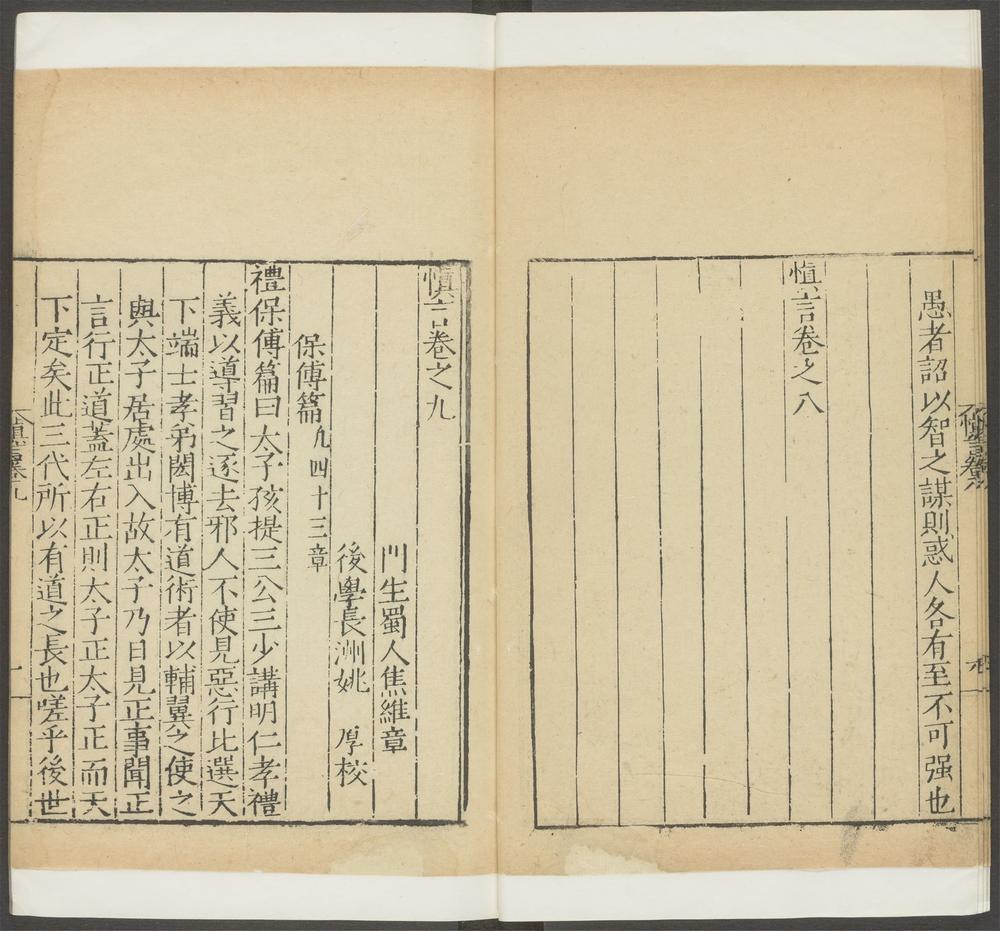 愚者詔以智之謀則惑人各有至不可强也
慎言卷之八
慎言卷之九
門生蜀人焦維章
後學長洲姚 厚校
保傅篇凡四十三章
禮保傅篇曰太子孩提三公三少講明仁孝禮
義以導習之逐去邪人不使見惡行比選天
下端士孝弟閎博有道術者以輔翼之使之
與太子居處出入故太子乃日見正事聞正
言行正道蓋左右正則太子正太子正而天
下定矣此三代所以有道之長也嗟乎後世